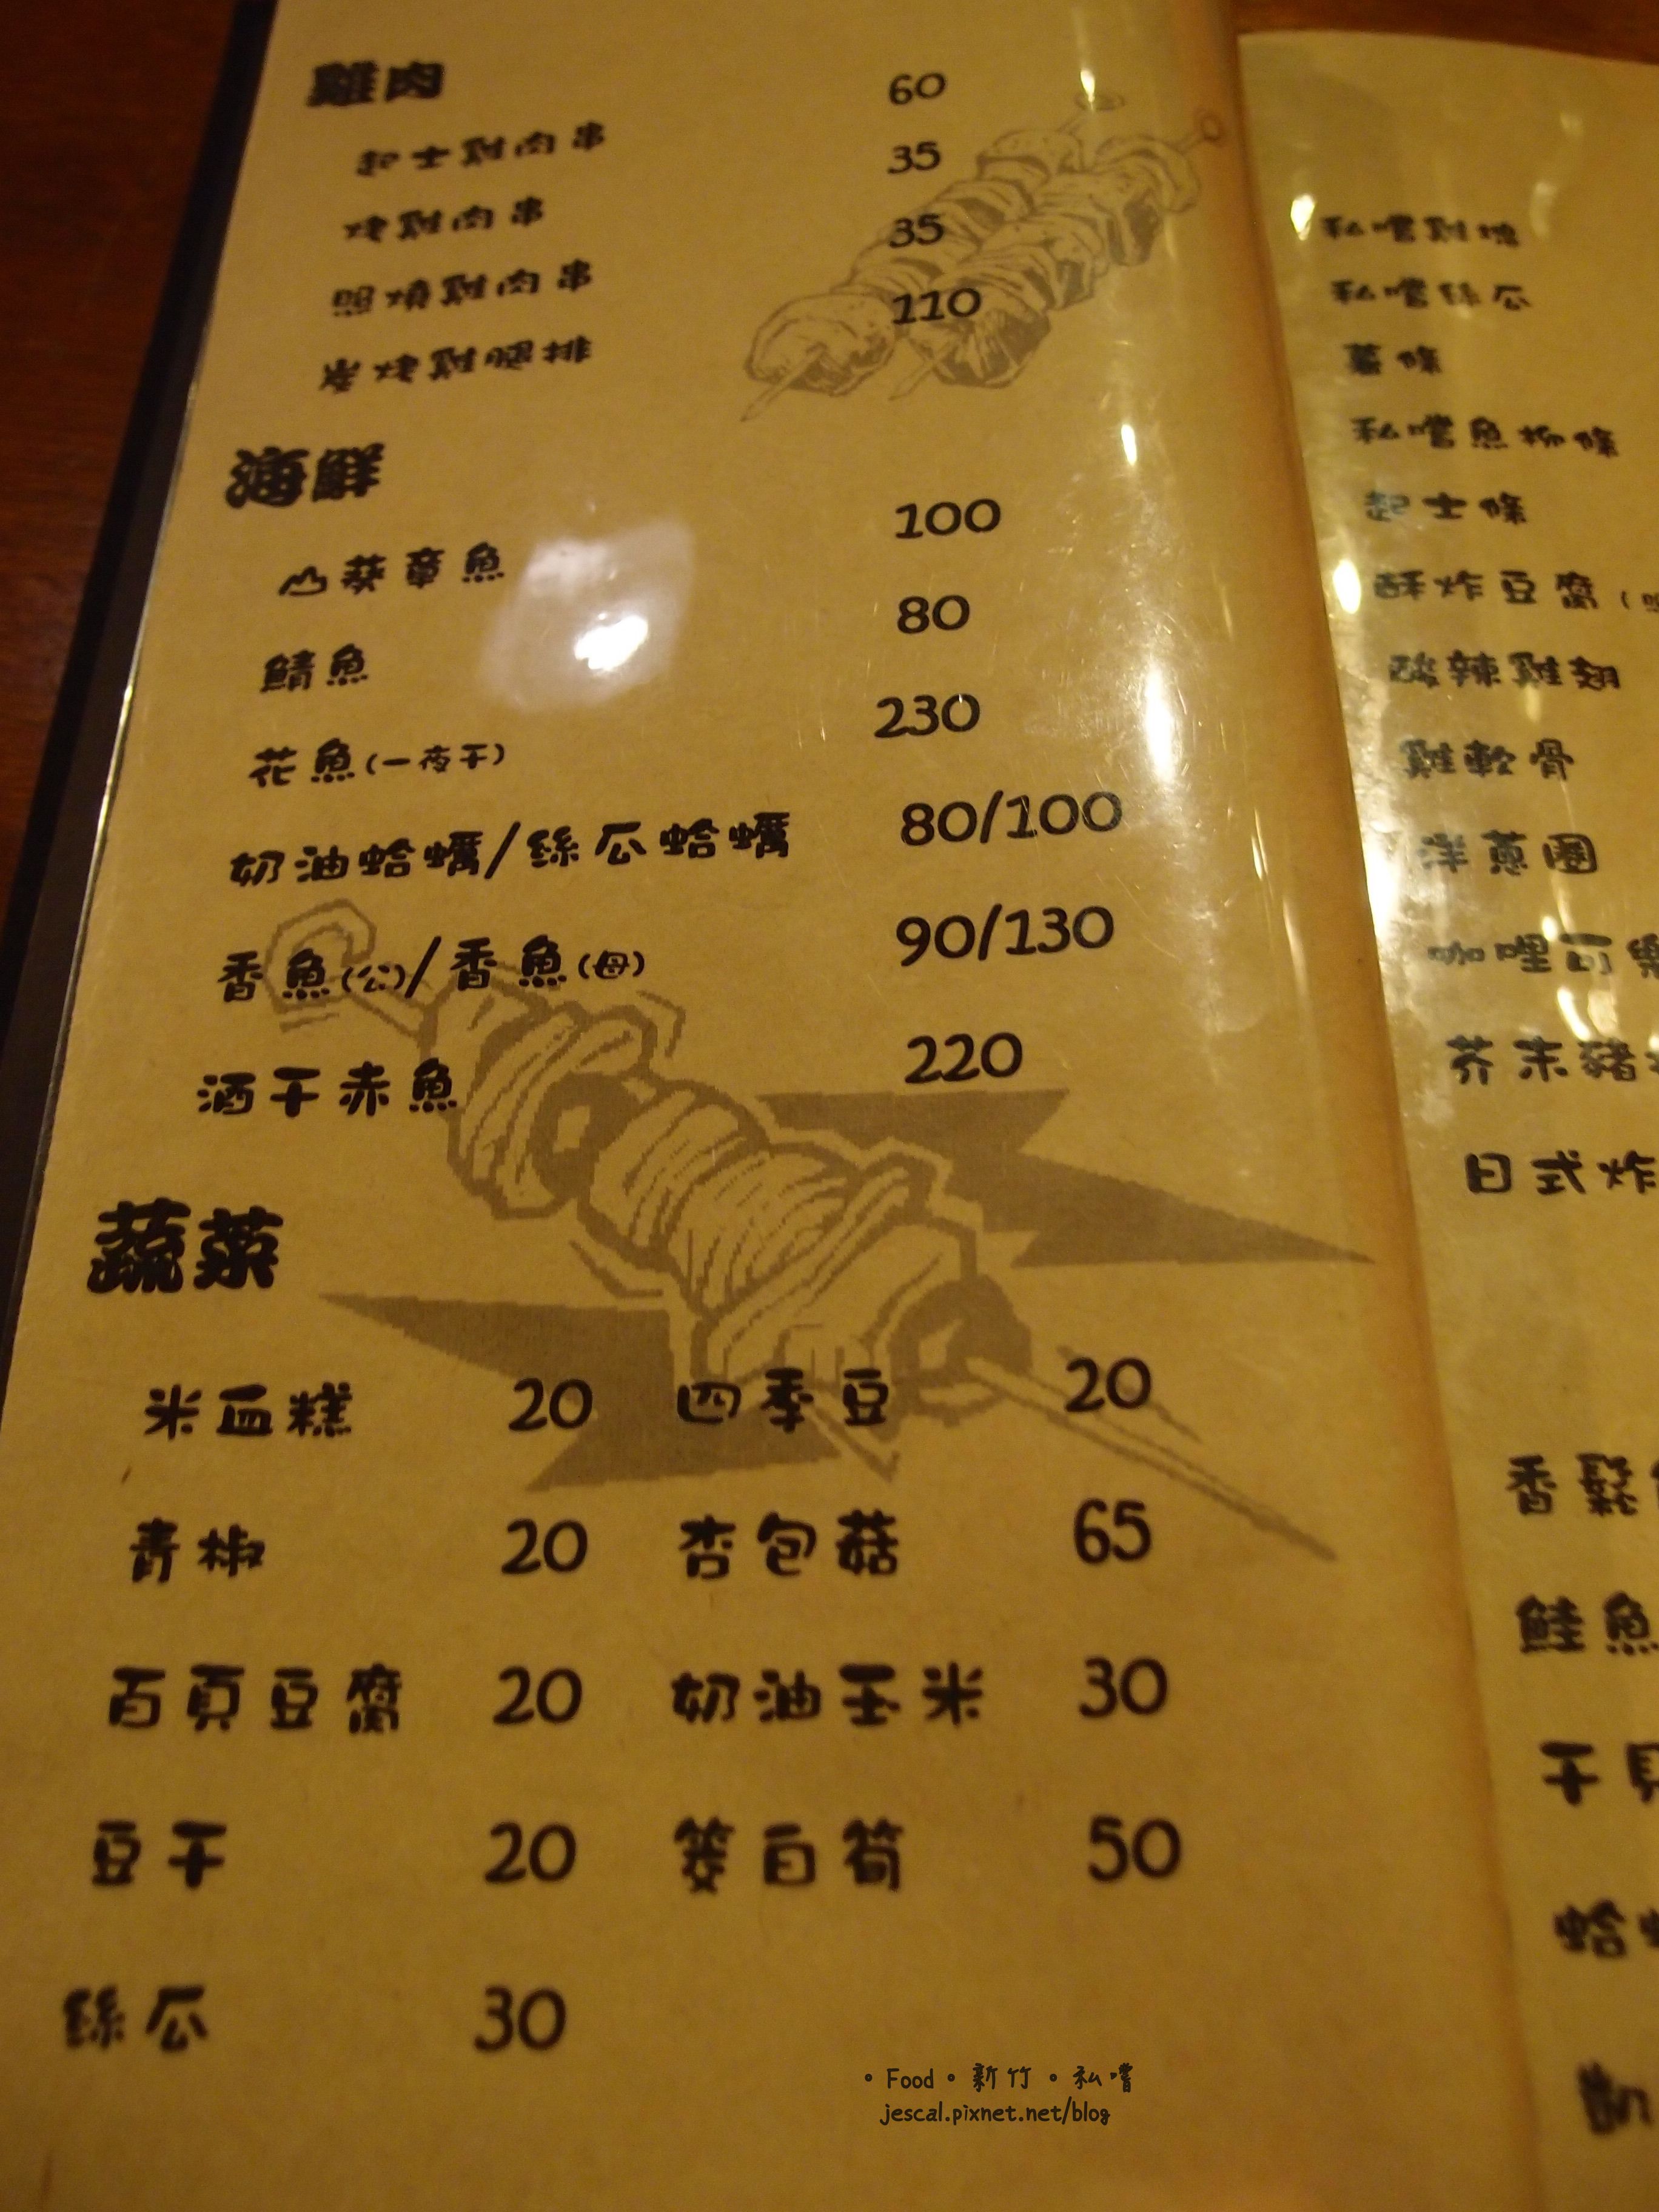 雞肉
起士雞肉串 60
烤雞肉串 35
照燒雞肉串 35
炭烤雞腿排 110
海鮮
山葵章魚 100
鯖魚 80
花魚(一夜干) 230
奶油蛤蠣/絲瓜蛤蠣 80/100
香魚(公)/香魚(母) 90/130
酒干赤魚 220
蔬菜
米血糕 20 四季豆 20
青椒 20 杏包菇 65
百頁豆腐 20 奶油玉米 30
豆干 20 筊白筍 50
絲瓜 30
私嚐雞塊
私嚐絲瓜
薯條
私嚐魚柳條
起士條
酥炸豆腐
酸辣雞翅
雞軟骨
洋蔥圈
咖哩可樂
芥末豬
日式炸
香鬆
鮭魚
干貝
蛤
。Food。新竹。私嚐
jescal.pixnet.net/blog